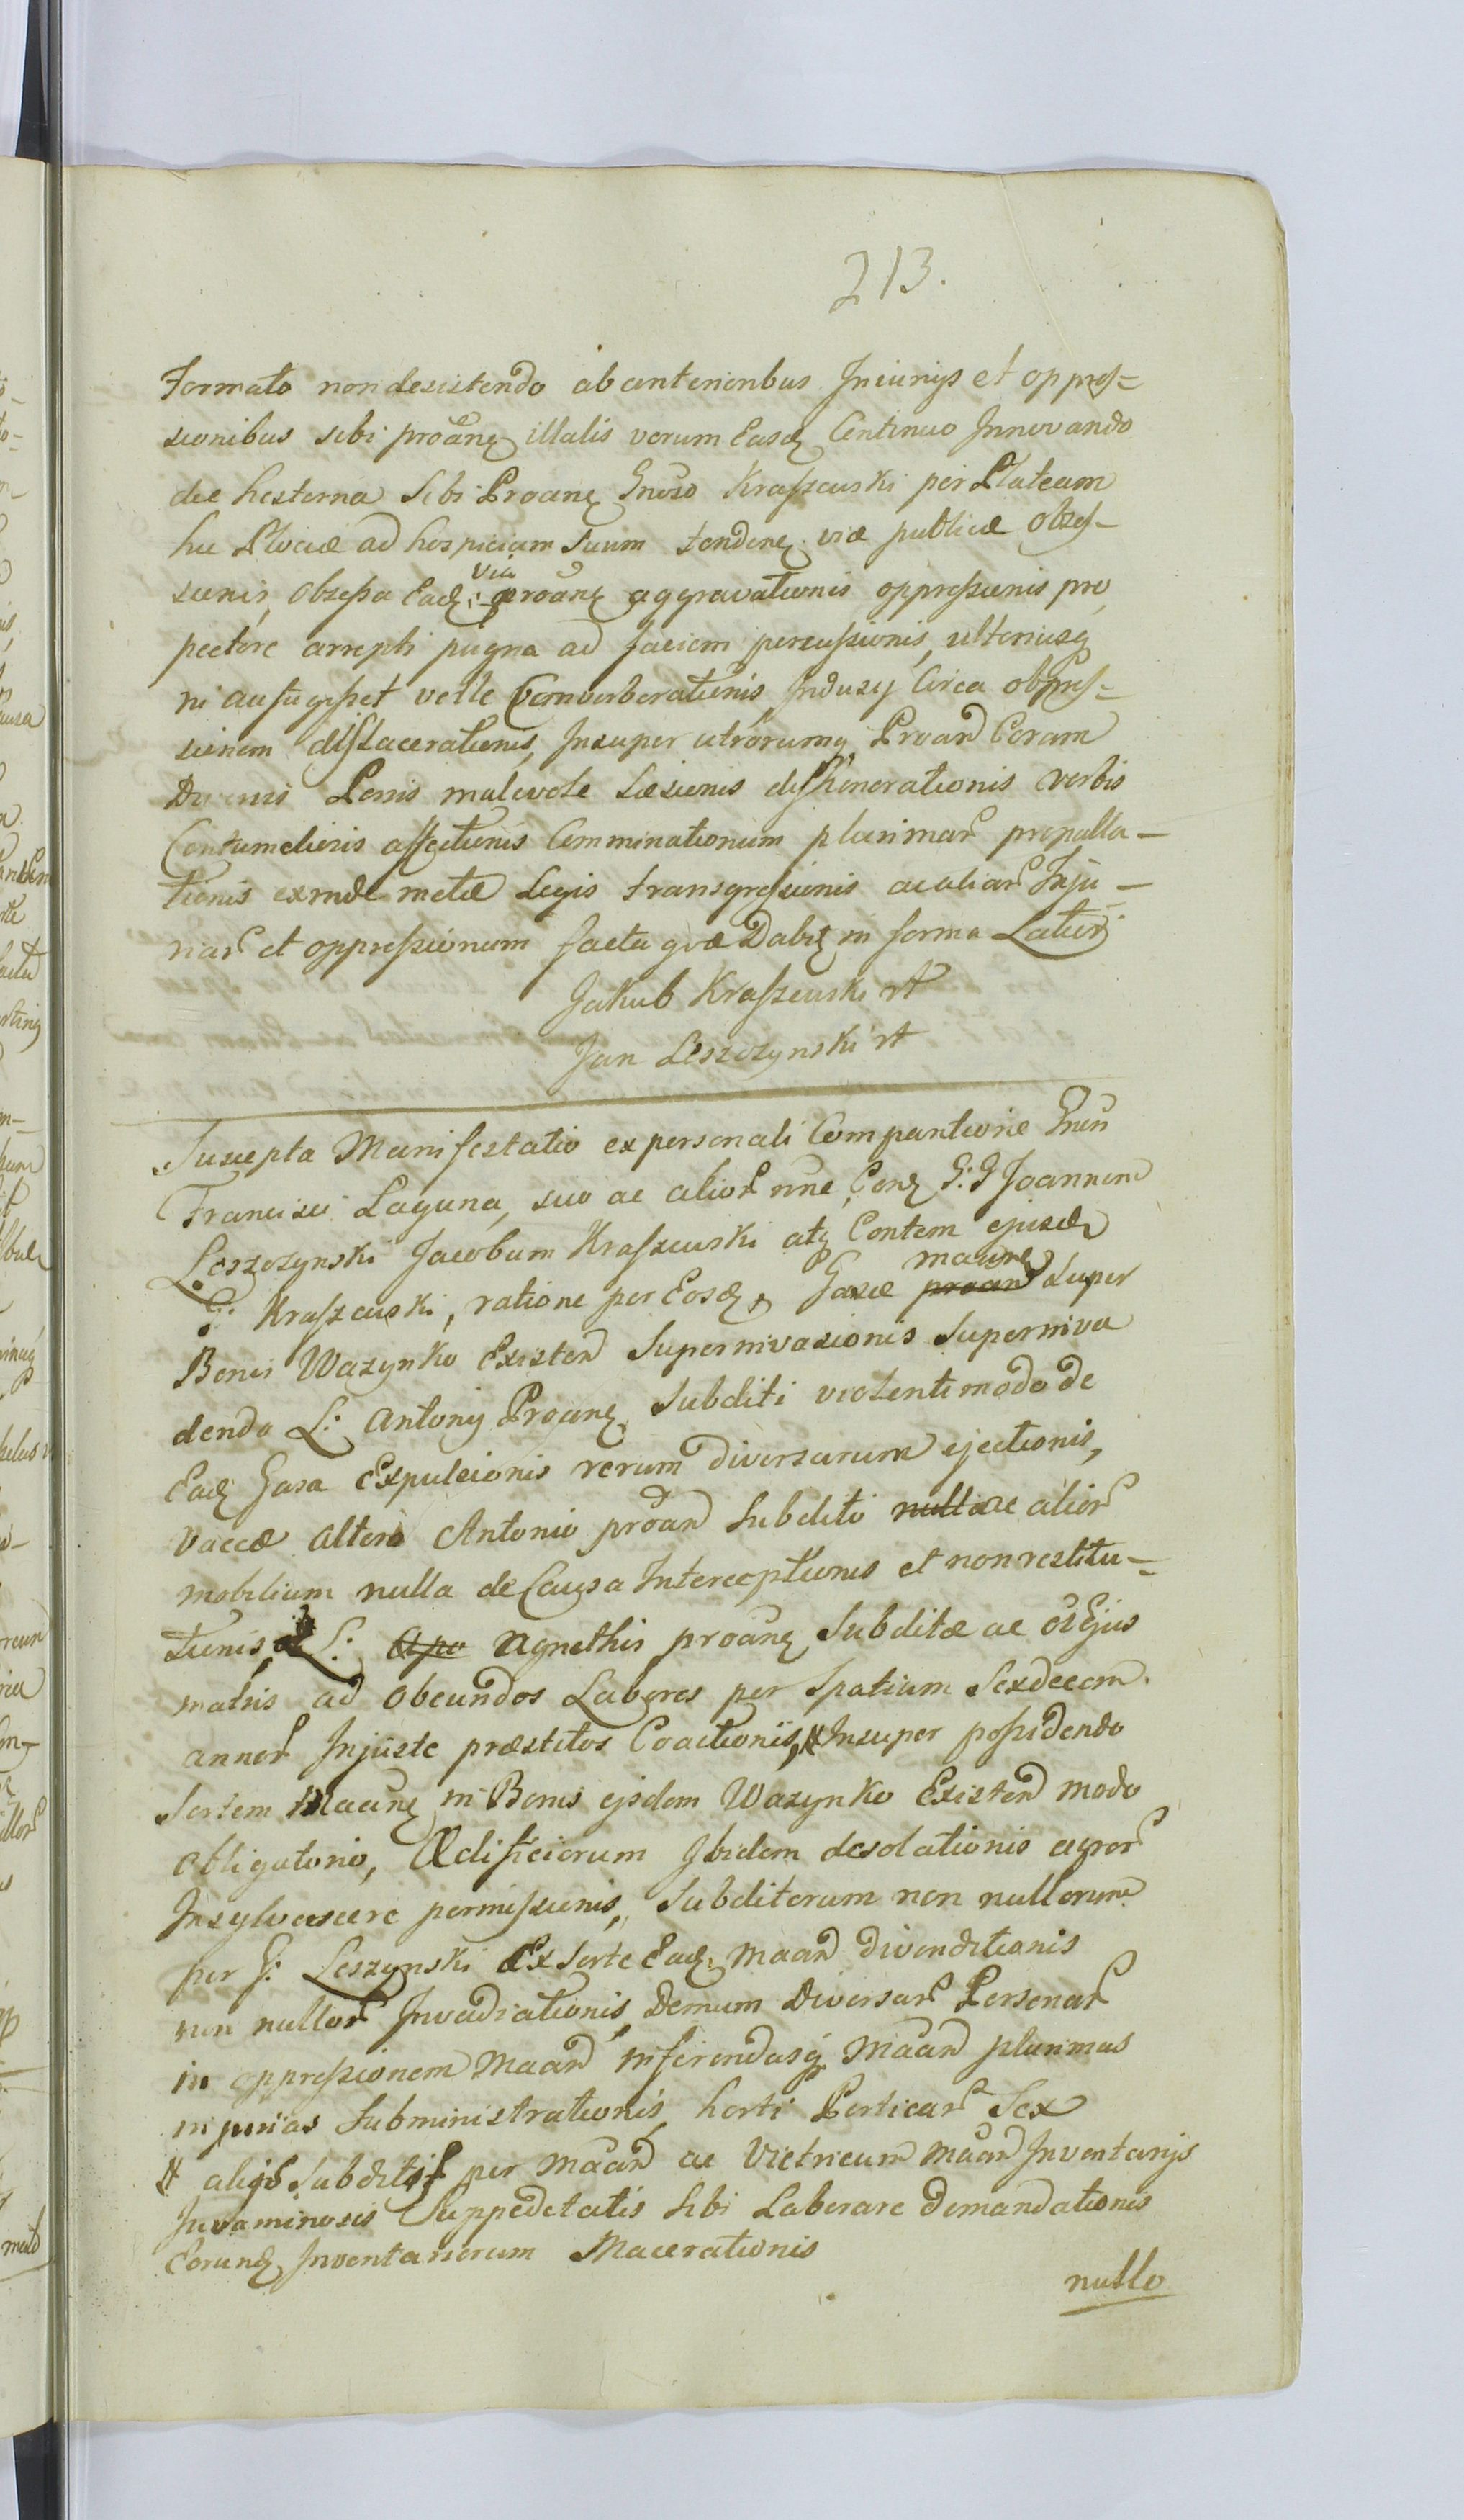 213.
Formato non desistendo ab anterioribus Iniurijs et oppres-
sionibus sibi proãnę illatis verum Easdę Continuo Innovando
die hesterna Sibi Proanę Gnoso Kraszewski per Plateam
hic Plociæ ad hospicium suum tendenę viæ publicæ Obses-
sionis, Obsessa Eadę via proãnę aggravationis oppressionis pro
pectore arrepti pugna ad faciem percussionis, ulteriusq̨
ni aufugisset velle Comverberationis Indusy Circa obpres-
sionem dislacerationis, Insuper utrorumq̨ Proand Coram
Diversis Psonis malevole Læsionis dishonorationis verbis
Contumeliosis affectionis Comminationum plurimar propalla-
tionis exinde metæ Legis transgressionis ac aliar Inju-
riar et oppressionum facta quæ Dabit in forma Latiori
Jakub Kraszewski rA
Jan Leszczynski rA
Suscepta Manifestatio ex personali Comparitione Gnsi
Francisci Laguna, suo ac alior nne, Conę G: G Joannem
Leszczynski Jacobum Kraszewski atq̨ Contem ejusdę
G: Kraszewski, ratione per Eosdę Gasæ proand maãnę super
Bonis Wazynko Existen Supernivasionis Superniva
dendo L: Antonij Proanę Subditi violenti modo de
Eadę Gasa Expulsionis rerum diversarum ejectionis,
vaccæ altera Antonio proand Subdito nulla ac alior
mobilium nulla de Causa Interceptionis et non restitu-
tionis, L: apo Agnethis proanę Subditæ ac Ejus
matris ad obeundos Labores per Spatium Sexdecem
annor Injuste præstitos Coactionis, # Insuper possidendo
Sortem Maanę in Bonis ejsdem Wazynko Existen modo
obligatorio, Ædificiorum Ibidem desolationis agror
Insylvescere permissionis, Subditorum non nullorum
per G: Leszynski Ex Sorte Eadę Maand divenditionis
non nullor Invadiationis Demum Diversar Personar
in oppressionem Maand inferendasq̨ Maand plurimas
injurias Subministrationis, horti Perticar Sex
# alijs Subditis per Maand ac Victricum Maand Inventarijs
Juvaminosis Suppeditatis Sibi Laborare demandationis
Eorundę Inventariorum Macerationis
nullo